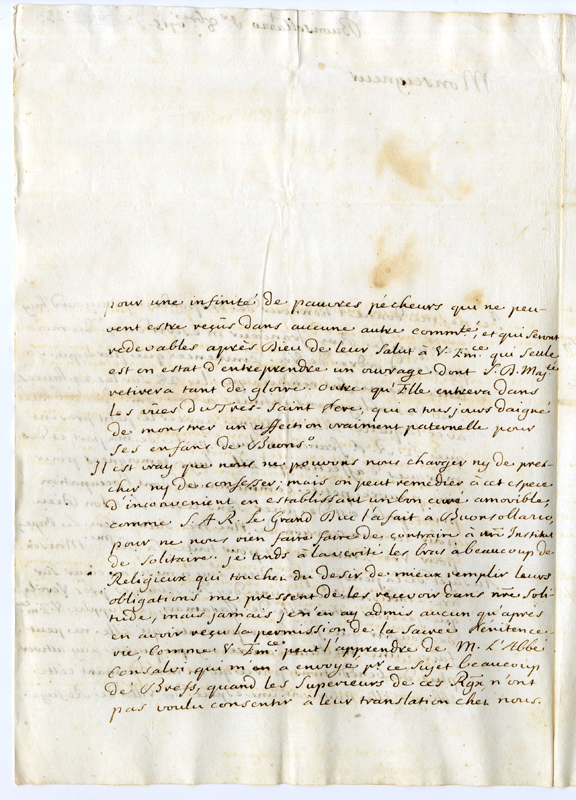 pour une infinité de pauvres pécheurs qui ne peu-
vent estre reçûs dans aucune autre comm.té, et qui seront
redevables après Dieu de leur salut à V. Em.ce qui seule
est en estat d'entreprendre un ouvrage dont S. D. Maj.té
retirera tant de gloire. outre qu'Elle entrera dans
les vües du Très-Saint Pere, qui a tousjours daigné
de monstrer un affection vraiment paternelle pour
ses enfans de Buons.o
Il est vray que nous ne pouvons nous charger ny de pres-
cher ny de confesser; mais on peut remédier à cet espece
d'inconvenient en establissant un bon curé amovible,
comme S. A. R. Le Grand Duc l'a fait à Buonsollazzo,
pour ne nous rien faire faire de contraire à nre Institut
de solitaire. je tends à la verité les bras à beaucoup de
Religieux qui touchez du desir de mieux remplir leurs
obligations me pressent de les recevoir dans nre soli-
tude, mais jamais je n'en ay admis aucun qu'après
en avoir reçu la permission de la Sacrée Pénitence-
rie comme V. Em.ce peut l'apprendre de M. L'Abbé
Consalvi, qui m'en a envoyé pr ce sujet beaucoup
de Brefs, quand les superieurs de ces Rgx n'ont
pas voulu consentir à leur translation chez nous.